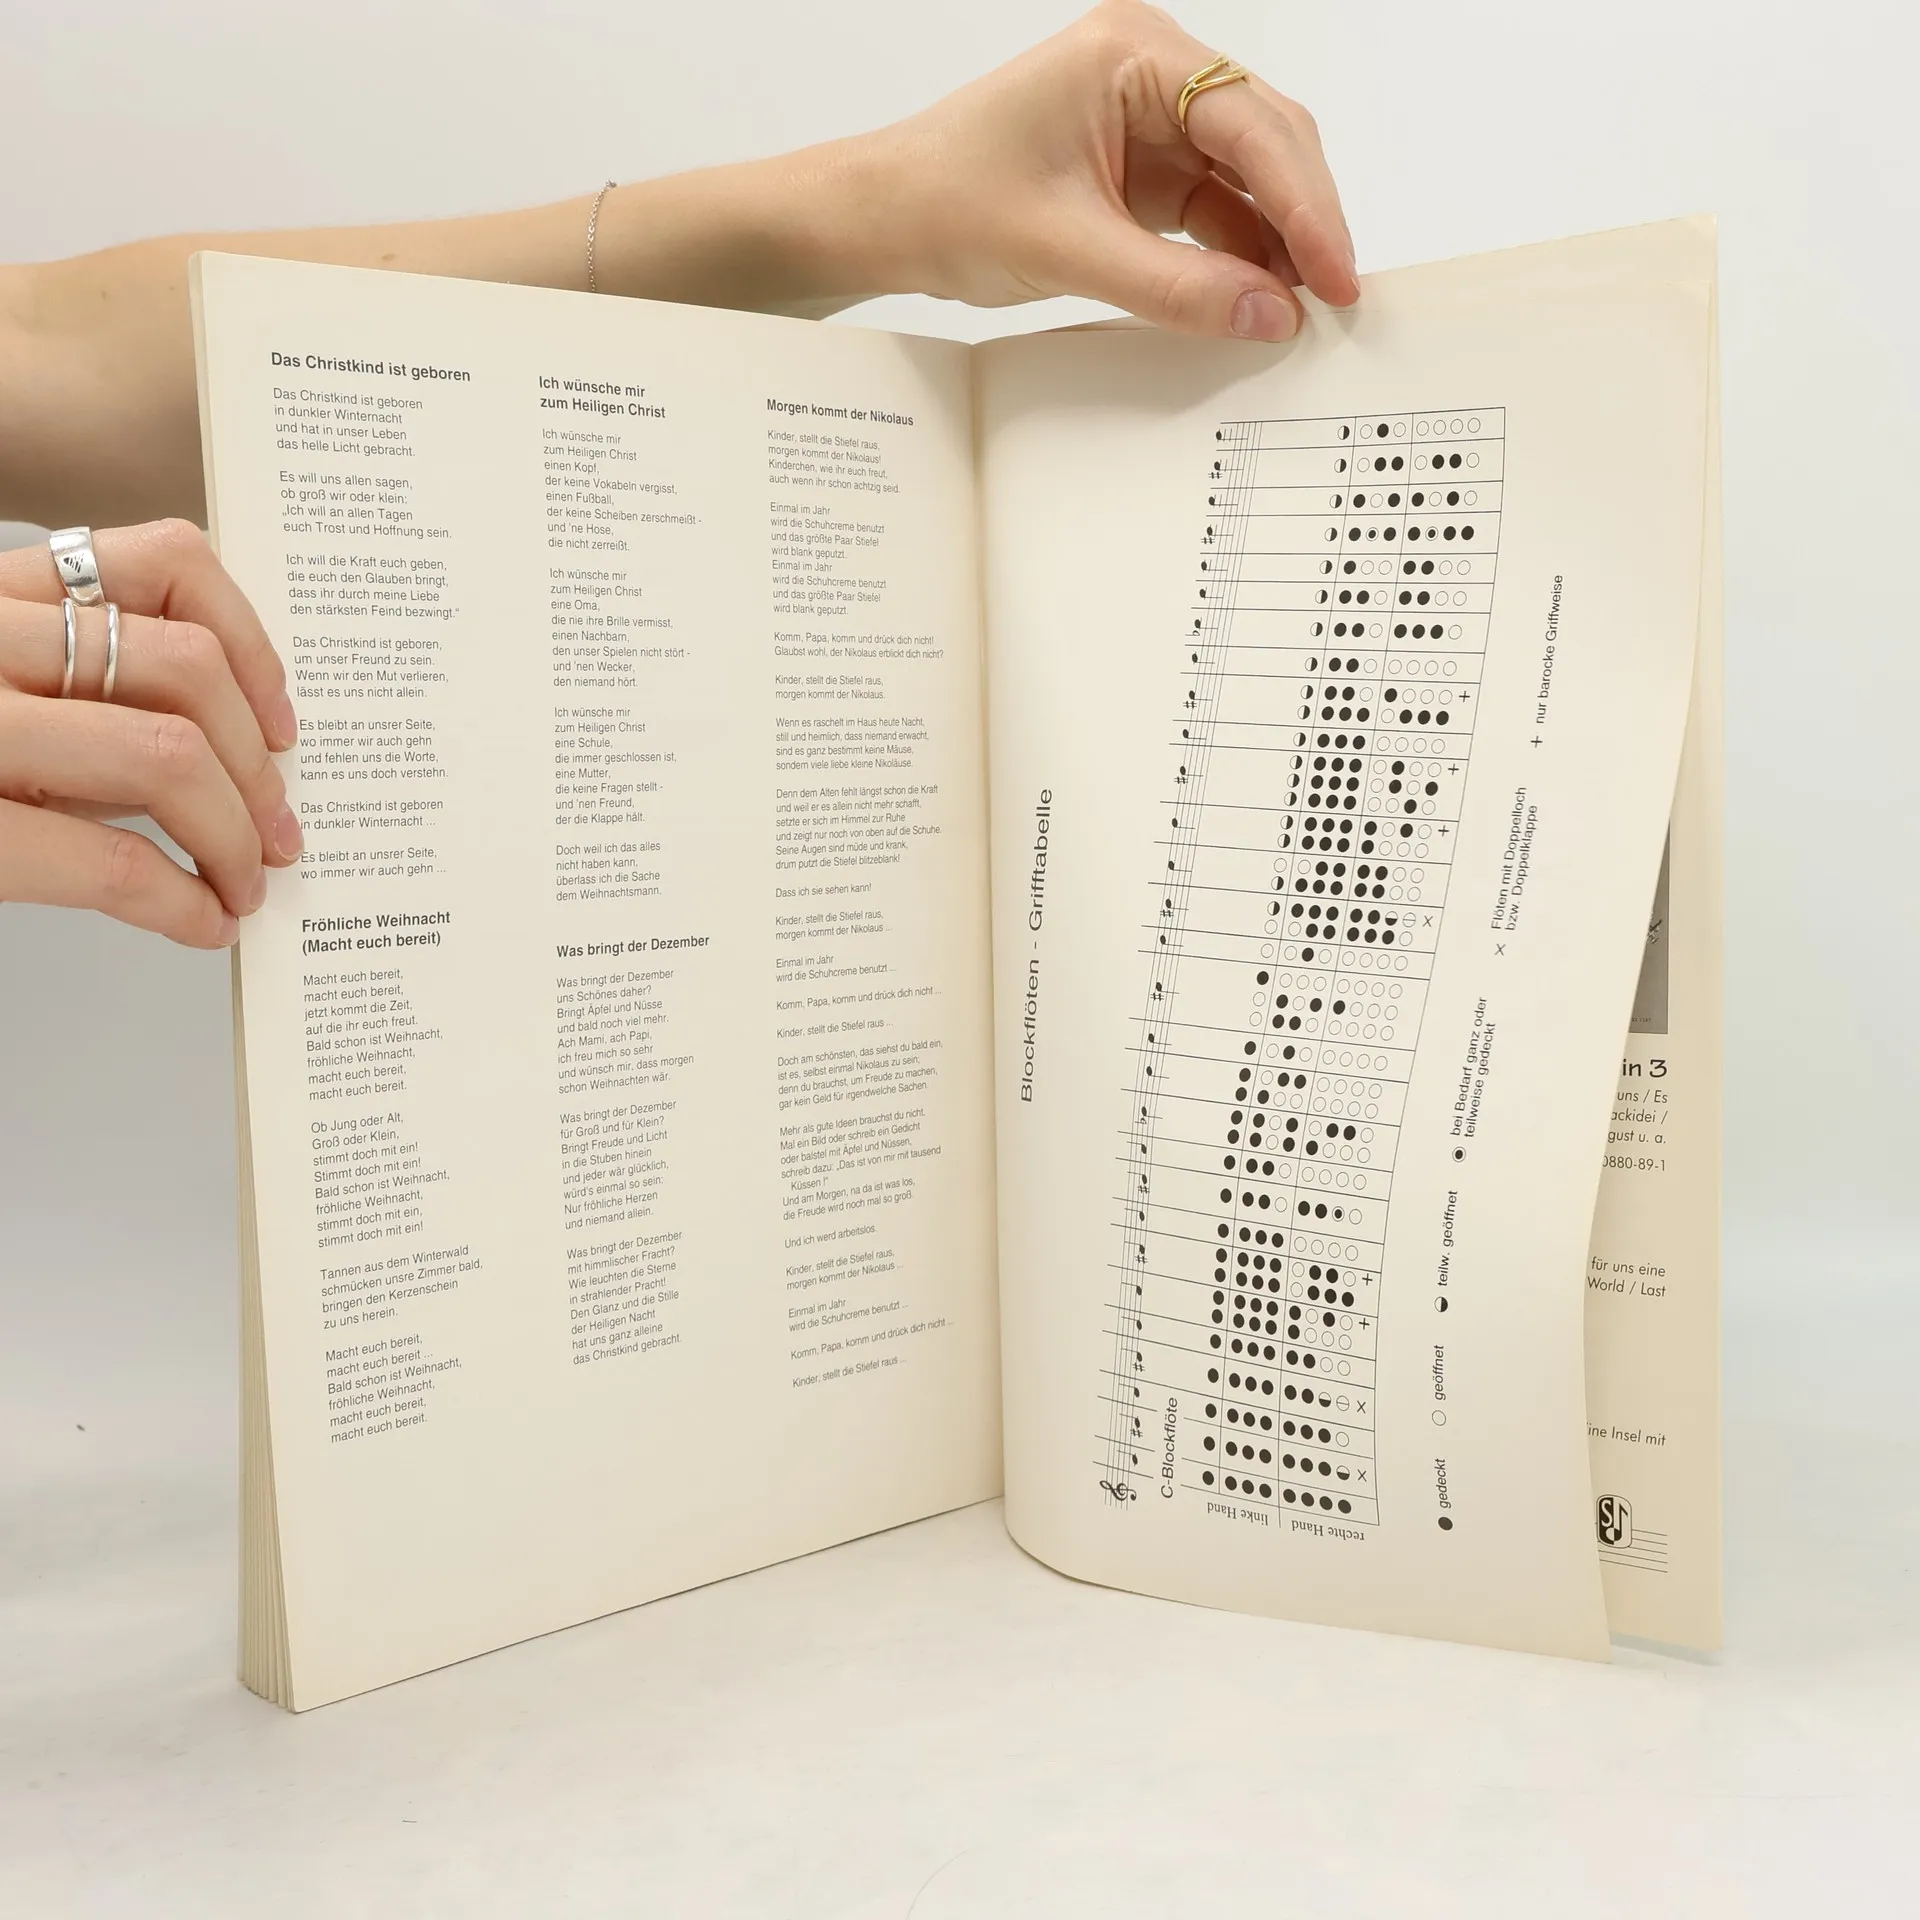 Das Christkind ist geboren
Das Christkind ist geboren
in dunkler Winternacht
und hat in unser Leben
das helle Licht gebracht.
Es will uns allen sagen,
ob groß wir oder klein:
„Ich will an allen Tagen
euch Trost und Hoffnung sein.
Ich will die Kraft euch geben,
die euch den Glauben bringt,
dass ihr durch meine Liebe
den stärksten Feind bezwingt.“
Das Christkind ist geboren,
um unser Freund zu sein.
Wenn wir den Mut verlieren,
lässt es uns nicht allein.
Es bleibt an unsrer Seite,
wo immer wir auch gehn
und fehlen uns die Worte,
kann es uns doch verstehn.
Das Christkind ist geboren
in dunkler Winternacht ...
Es bleibt an unsrer Seite,
wo immer wir auch gehn ...
Fröhliche Weihnacht
(Macht euch bereit)
Macht euch bereit,
macht euch bereit,
jetzt kommt die Zeit,
auf die ihr euch freut.
Bald schon ist Weihnacht,
fröhliche Weihnacht,
macht euch bereit,
macht euch bereit.
Ob Jung oder Alt,
Groß oder Klein,
stimmt doch mit ein!
Stimmt doch mit ein!
Bald schon ist Weihnacht,
fröhliche Weihnacht,
stimmt doch mit ein,
stimmt doch mit ein!
Tannen aus dem Winterwald
schmücken unsre Zimmer bald,
bringen den Kerzenschein
zu uns herein.
Macht euch bereit,
macht euch bereit ...
Bald schon ist Weihnacht,
fröhliche Weihnacht,
macht euch bereit,
macht euch bereit.
Ich wünsche mir
zum Heiligen Christ
Ich wünsche mir
zum Heiligen Christ
einen Kopf,
der keine Vokabeln vergisst,
einen Fußball,
der keine Scheiben zerschmeißt -
und 'ne Hose,
die nicht zerreißt.
Ich wünsche mir
zum Heiligen Christ
eine Oma,
die nie ihre Brille vermisst,
einen Nachbarn,
den unser Spielen nicht stört -
und 'nen Wecker,
den niemand hört.
Ich wünsche mir
zum Heiligen Christ
eine Schule,
die immer geschlossen ist,
eine Mutter,
die keine Fragen stellt -
und 'nen Freund,
der die Klappe hält.
Doch weil ich das alles
nicht haben kann,
überlass ich die Sache
dem Weihnachtsmann.
Was bringt der Dezember
Was bringt der Dezember
uns Schönes daher?
Bringt Äpfel und Nüsse
und bald noch viel mehr.
Ach Mami, ach Papi,
ich freu mich so sehr
und wünsch mir, dass morgen
schon Weihnachten wär.
Was bringt der Dezember
für Groß und für Klein?
Bringt Freude und Licht
in die Stuben hinein
und jeder wär glücklich,
würd's einmal so sein:
Nur fröhliche Herzen
und niemand allein.
Was bringt der Dezember
mit himmlischer Fracht?
Wie leuchten die Sterne
in strahlender Pracht!
Den Glanz und die Stille
der Heiligen Nacht
hat uns ganz alleine
das Christkind gebracht.
Morgen kommt der Nikolaus
Kinder, stellt die Stiefel raus,
morgen kommt der Nikolaus!
Kinderchen, wie ihr euch freut,
auch wenn ihr schon achtzig seid.
Einmal im Jahr
wird die Schuhcreme benutzt
und das größte Paar Stiefel
wird blank geputzt.
Einmal im Jahr
wird die Schuhcreme benutzt
und das größte Paar Stiefel
wird blank geputzt.
Komm, Papa, komm und drück dich nicht!
Glaubst wohl, der Nikolaus erblickt dich nicht?
Kinder, stellt die Stiefel raus,
morgen kommt der Nikolaus.
Wenn es raschelt im Haus heute Nacht,
still und heimlich, dass niemand erwacht,
sind es ganz bestimmt keine Mäuse,
sondern viele liebe kleine Nikoläuse.
Denn dem Alten fehlt längst schon die Kraft
und weil er es allein nicht mehr schafft,
setzte er sich im Himmel zur Ruhe
und zeigt nur noch von oben auf die Schuhe.
Seine Augen sind müde und krank,
drum putzt die Stiefel blitzeblank!
Dass ich sie sehen kann!
Kinder, stellt die Stiefel raus,
morgen kommt der Nikolaus ...
Einmal im Jahr
wird die Schuhcreme benutzt ...
Komm, Papa, komm und drück dich nicht ...
Kinder, stellt die Stiefel raus ...
Doch am schönsten, das siehst du bald ein,
ist es, selbst einmal Nikolaus zu sein;
denn du brauchst, um Freude zu machen,
gar kein Geld für irgendwelche Sachen.
Mehr als gute Ideen brauchst du nicht.
Mal ein Bild oder schreib ein Gedicht
oder bastel mit Äpfel und Nüssen,
schreib dazu: „Das ist von mir mit tausend
Küssen !“
Und am Morgen, na da ist was los,
die Freude wird noch mal so groß.
Und ich werd arbeitslos.
Kinder, stellt die Stiefel raus,
morgen kommt der Nikolaus ...
Einmal im Jahr
wird die Schuhcreme benutzt ...
Komm, Papa, komm und drück dich nicht ...
Kinder, stellt die Stiefel raus ...
Blockflöten - Grifftabelle
C-Blockflöte
linke Hand
rechte Hand
gedeckt
geöffnet
teilw. geöffnet
bei Bedarf ganz oder
teilweise gedeckt
x Flöten mit Doppelloch
bzw. Doppelklappe
+ nur barocke Griffweise
in 3
uns / Es
ackidei /
gust u. a.
0880-89-1
für uns eine
World / Last
ine Insel mit